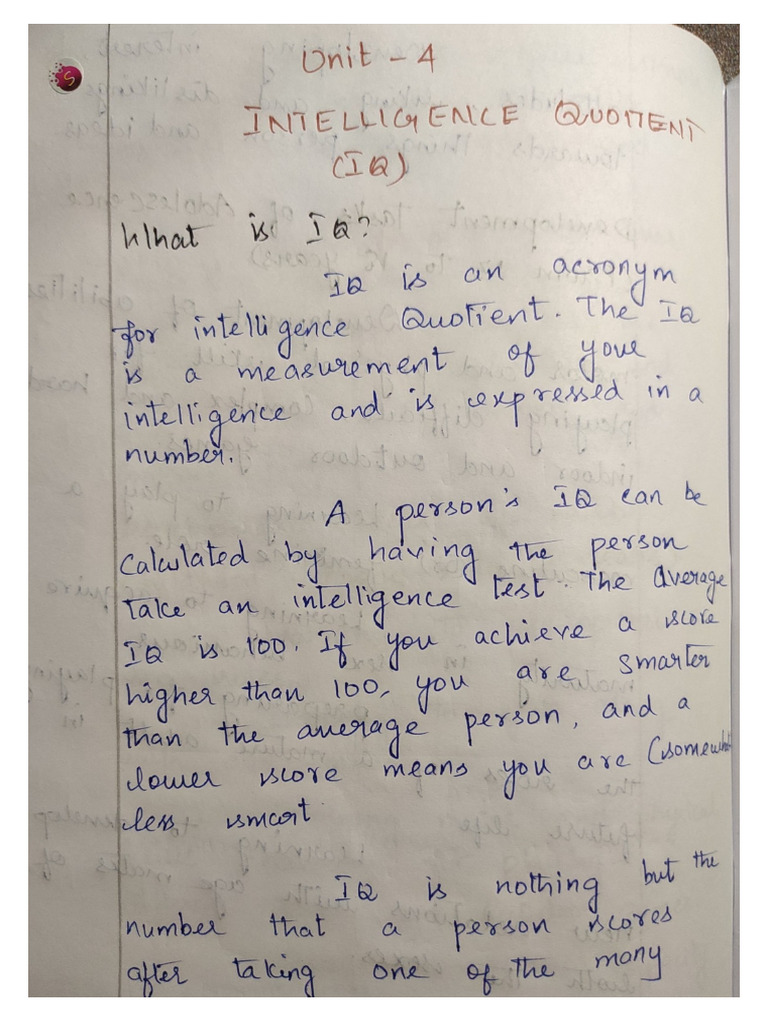 S
Unit - 4
INTELLIGENCE QUOTIENT
(IQ)
What is IQ?
IQ is an acronym
for intelligence Quotient. The IQ
is a measurement of your
intelligence and is expressed in a
number.
A person's IQ can be
calculated by having the person
take an intelligence test. The average
IQ is 100. If you achieve a score
higher than 100, you are smarter
than the average person, and a
lower score means you are (somewhat
less smart.
IQ is nothing but the
number that a person scores
after taking one of the many